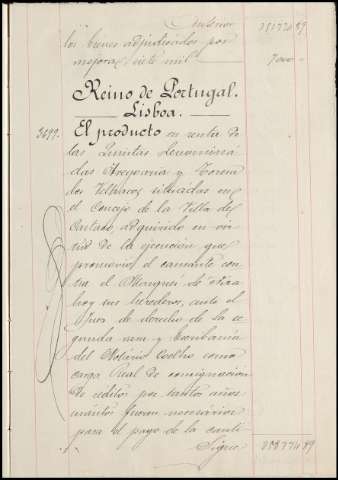 Anterior 35177489
los bienes adjudicados por
mejora, siete mil 7000
Reino de Portugal.
Lisboa.
3699. El producto en renta de
las Quintas denomina-
das Aregoaria y Torem
dos Velhacos situadas en
el Concejo de la Villa de
Cartaxo, adquirido en vir-
tud de la ejecucion que
promovió el causante con-
tra el Marqués de
hoy sus herederos, ante el
Juez de derecho de la se-
gunda vara y Escribanía
del Notario Coelho como
carga Real de consignacion
de réditos por tantos años
cuantos fueren necesarios
para el pago de la canti
Sigue